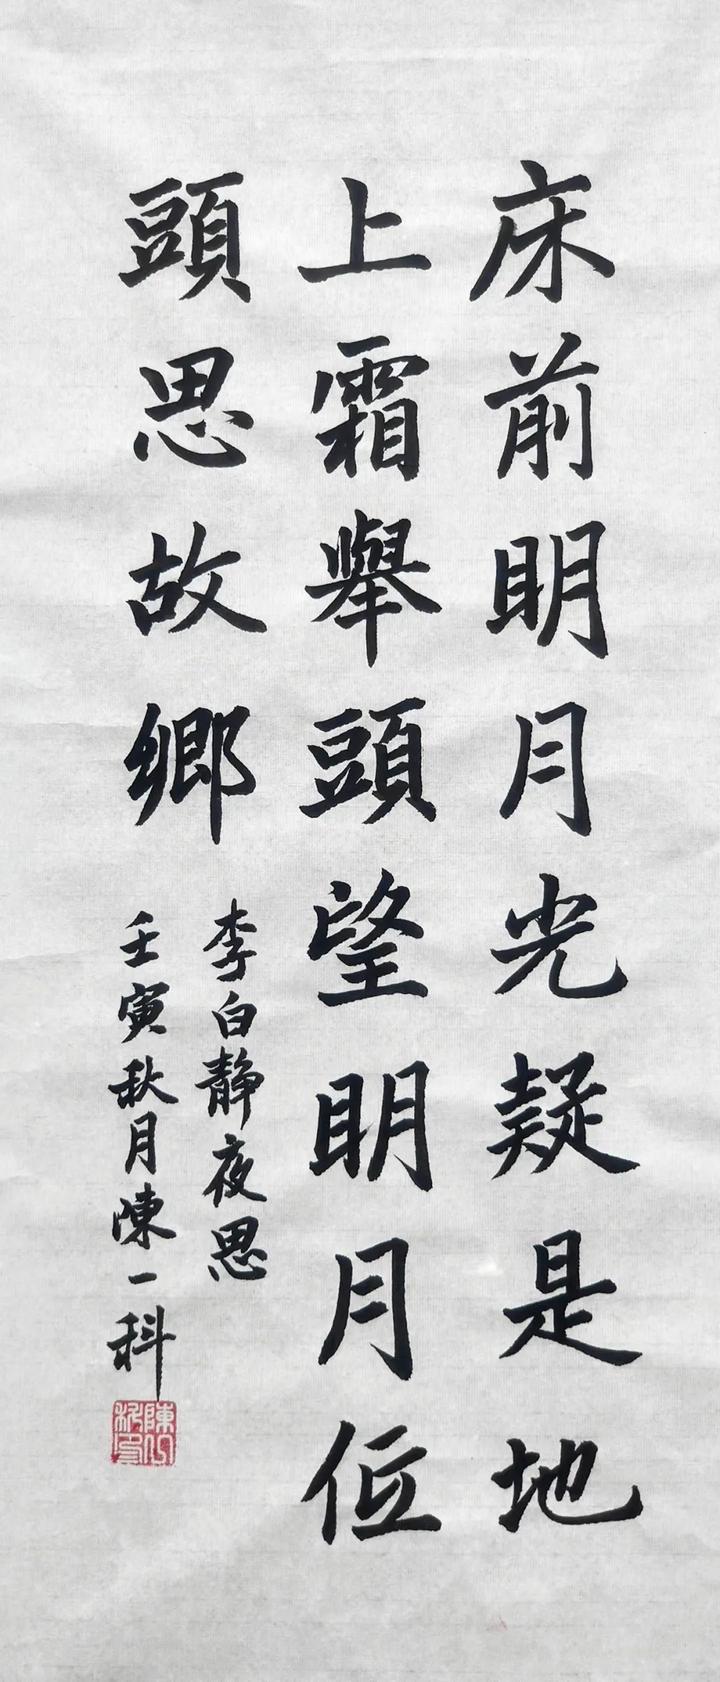 床前明月光疑是地
上霜舉頭望明月低
頭思故鄉
李白靜夜思
壬寅秋月陳一科